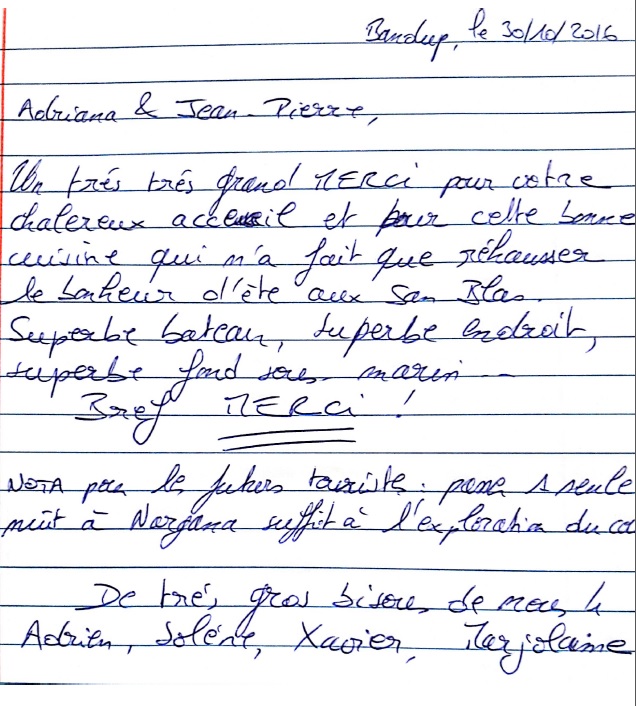 Bandup, le 30/10/2016
Adriana & Jean-Pierre,
Un trés trés grand MERCi pour votre
chalereux acceuil et pour cette bonne
cuisine qui n'a fait que réhausser
le bonheur d'être aux San Blas.
Superbe bateau, superbe endroit,
superbe fond sous-marin --
Bref MERCi !
NOTA pour les futurs touriste : passer 1 seule
nuit à Nargana suffit à l'exploration du co
De trés gros bisous de nous 4
Adrien, Solène, Xavier, Marjolaine